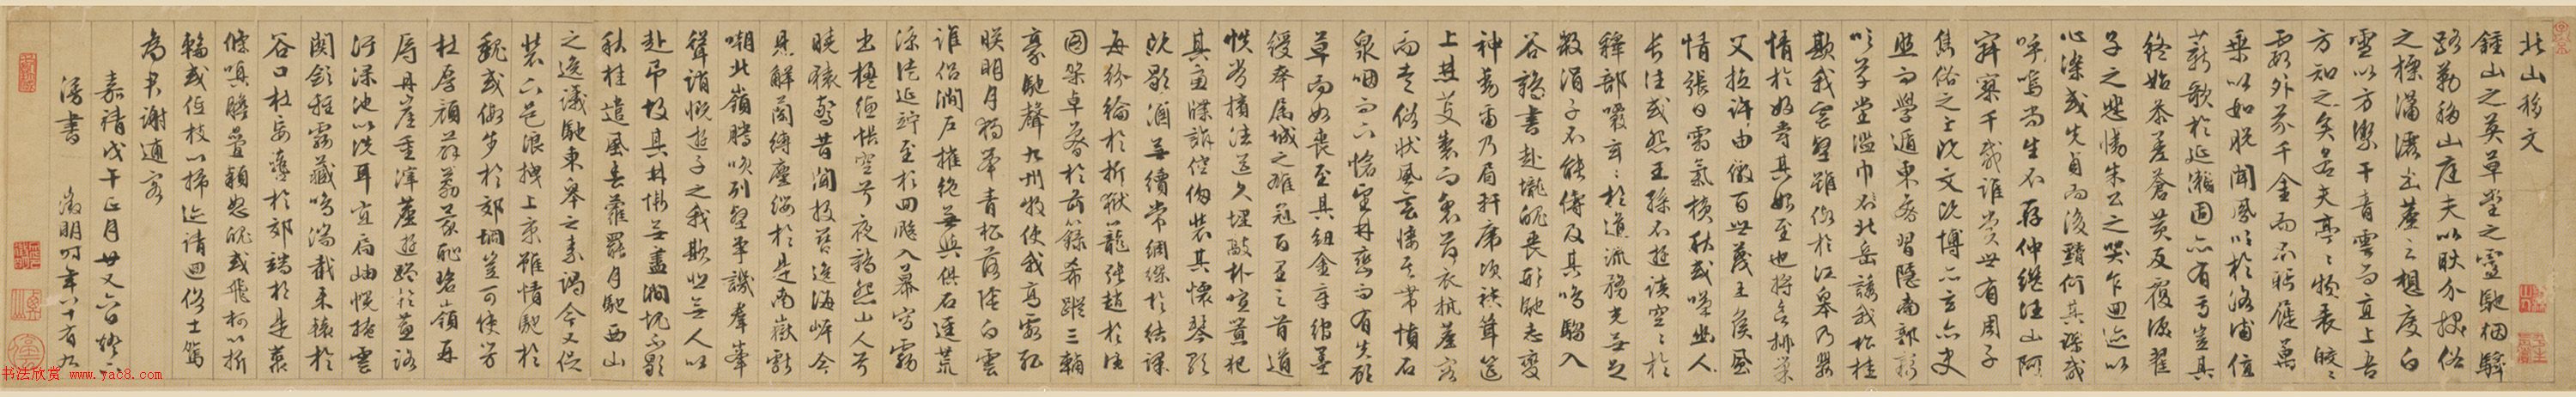 北山移文
鍾山之英草堂之靈馳烟驛
路勒移山庭夫以耿介拔俗
之標瀟灑出塵之想度白
雪以方潔干青雲而直上吾
方知之矣若夫亭亭物表皎皎
霞外芥千金而不眄屣萬
乘以如脫聞鳳吹於洛浦值
薪歌於延瀨固亦有焉豈其
終始參差蒼黃反覆淚翟
子之悲慟朱公之哭乍迴迹以
心染或先貞而後黷何其謬哉
嗚呼尚生不存仲氏既往山阿
寂寥千載誰賞世有周子
雋俗之士既文既博亦玄亦史
然而學遁東魯習隱南郭竊
吹草堂濫巾於北岳誘我松桂
欺我雲壑雖假於江皋乃纓
情於好爵其始至也將欲排巢
父拉許由傲百世蔑王侯風
情張日霜氣橫秋或嘆幽人
長往或怨王孫不遊談空空於
釋部覈玄玄於道流務光
涓子不能儔及其鳴騶入
谷鶴書赴隴形馳魄散志變
神動爾乃眉軒席次袂聳筵
上焚芰製而裂荷衣抗塵容
而走俗狀風雲悽其帶憤石
泉咽而下愴望林巒而有失顧
草木而如喪至其紐金章綰墨
綬跨屬城之雄冠百里之首道
帙長擯法筵久埋敲扑喧囂犯
其慮牒訴倥傯裝其懷琴歌
既斷酒賦無續常綢繆於結課
每紛綸於折獄籠張趙於往
圖架卓魯於前籙希蹤三輔
豪馳聲九州牧使我高霞孤
映明月獨舉青松落陰白雲
誰侶澗戶摧絕無與歸石逕荒
涼徒延佇至於迴飈入幕寫霧
出楹蕙帳空兮夜鶴怨山人去兮
曉猿驚昔聞投簪逸海岸今
見解蘭縛塵纓於是南嶽獻
嘲北隴騰笑列壑爭譏攢峯
竦誚慨遊子之我欺悲無人以
赴弔故其林慚無盡澗愧不歇
秋桂遣風春蘿罷月騁西山
之逸議馳東皋之素謁今又促
裝下邑浪拽上京雖情投於
魏闕或假步於山扃豈可使芳
杜厚顏薜荔蒙恥碧嶺再
辱丹崖重滓塵遊躅於蕙路
汙淥池以洗耳宜扃岫幌掩雲
關斂輕霧藏鳴湍截來轅於
谷口杜妄轡於郊端於是叢
條瞋膽疊穎怒魄或飛柯以折
輪或低枝以掃迹請迴俗士駕
為君謝逋客
嘉靖戊午正月廿又六日燈下
漫書　徵明時年八十有九
书法欣赏 www.yac8.com